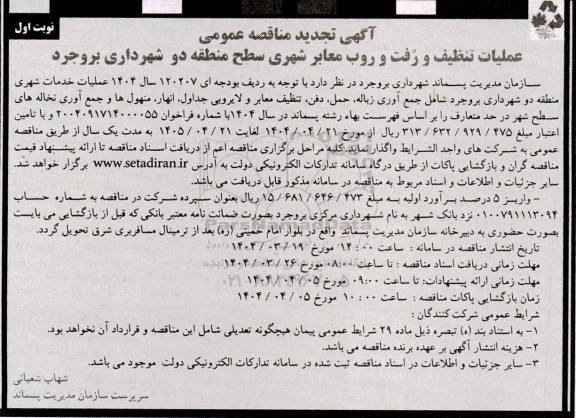 نوبت اول
آگهی تجدید مناقصه عمومی
عملیات تنظیف و رُفت و روب معابر شهری سطح منطقه دو شهرداری بروجرد
سازمان مدیریت پسماند شهرداری بروجرد در نظر دارد با توجه به ردیف بودجه ای ۱۲۰۲۰۷ سال ۱۴۰۴ عملیات خدمات شهری
منطقه دو شهرداری بروجرد شامل جمع آوری زباله، حمل، دفن، تنظیف معابر و لایروبی جداول، انهار، منهول ها و جمع آوری نخاله های
سطح شهر در حد متعارف را بر اساس فهرست بهاء رشته پسماند در سال ۱۴۰۴با شماره فراخوان ۲۰۰۴۰۹۱۷۱۴۰۰۰۰۵۵ و با تامین
اعتبار مبلغ ۴۷۵ / ۹۲۹ / ۶۳۲ / ۳۱۳ ریال از مورخ ۲۱ / ۰۴ / ۱۴۰۴ لغایت ۲۱ / ۰۴ / ۱۴۰۵ به مدت یک سال از طریق مناقصه
عمومی به شرکت های واجد الشرایط واگذار نماید.کلیه مراحل برگزاری مناقصه اعم از دریافت اسناد مناقصه تا ارائه پیشنهاد قیمت
مناقصه گران و بازگشایی پاکات از طریق درگاه سامانه تدارکات الکترونیکی دولت به آدرس www.setadiran.ir برگزار خواهد شد.
سایر جزئیات و اطلاعات و اسناد مربوط به مناقصه در سامانه مذکور قابل دریافت می باشد.
- واریز ۵ درصد برآورد اولیه به مبلغ ۴۷۳ / ۶۴۶ / ۶۸۱ / ۱۵ ریال بعنوان سپرده شرکت در مناقصه به شماره حساب
۰۱۰۰۷۹۱۱۱۳۰۹۴ نزد بانک شهر به نام شهرداری مرکزی بروجرد بصورت ضمانت نامه معتبر بانکی که قبل از بازگشایی می بایست
بصورت حضوری به دبیرخانه سازمان مدیریت پسماند واقع در بلوار امام خمینی (ره) بعد از ترمینال مسافربری شرق تحویل گردد.
تاریخ انتشار مناقصه در سامانه : ساعت ۱۴:۰۰ مورخ ۱۹ / ۰۳ / ۱۴۰۴
مهلت زمانی دریافت اسناد مناقصه : تا ساعت ۰۸:۰۰ مورخ ۲۶ / ۰۳ / ۱۴۰۴
مهلت زمانی ارائه پیشنهادات: تا ساعت ۰۹:۰۰ مورخ ۰۵ / ۰۴ / ۱۴۰۴
زمان بازگشایی پاکات مناقصه : ساعت ۱۰:۰۰ مورخ ۰۵ / ۰۴ / ۱۴۰۴
شرایط عمومی شرکت کنندگان :
۱- به استناد بند (ه) تبصره ذیل ماده ۲۹ شرایط عمومی پیمان هیچگونه تعدیلی شامل این مناقصه و قرارداد آن نخواهد بود.
۲- هزینه انتشار آگهی بر عهده برنده مناقصه می باشد.
۳- سایر جزئیات و اطلاعات در اسناد مناقصه ثبت شده در سامانه تدارکات الکترونیکی دولت موجود می باشد.
شهاب شعبانی
سرپرست سازمان مدیریت پسماند